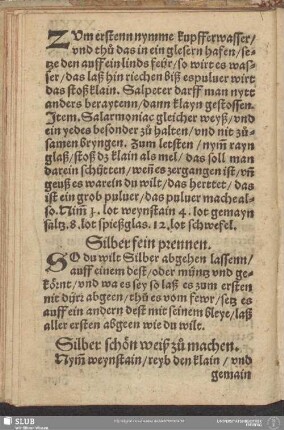 ZUm erstenn nymme kupfferwasser/
vnd thů das in ein glesern hafen/se/
tze den auff ein linds feür/so wirt es was/
ser/das laß hin riechen biß es puluer wirt
das stoß klain. Salpeter darff man nytt
anders beraytenn/dann klayn gestossen.
Item. Salarmoniac gleicher weyß/vnd
ein yedes besonder zů halten/vnd nit zů/
samen bryngen. Zum letsten/nym̃ rayn
glaß/stoß dz klain als mel/das soll man
darein schütten/weñ es zergangen ist/vñ
geuß es warein du wilt/das herttet/das
ist ein grob puluer/das puluer mach eal/
so. Nim̃ 1. lot weynstain 4. lot gemayn
saltz. 8. lot spießglas. 12. lot schwefel.
Silber fein prennen.
SO du wilt Silber abgehen lassenn/
auff einem dest/oder müntz vnd ge/
körnt/vnd wa es sey so laß es zum ersten
nit dürr abgeen/thů es vom fewr/setz es
auff ein andern dest mit seinem bleye/laß
aller ersten abgeen wie du wilt.
Silber schön weiß zů machen.
Nym̃ weynstain/reyb den klain/vnd
gemain
SLUB